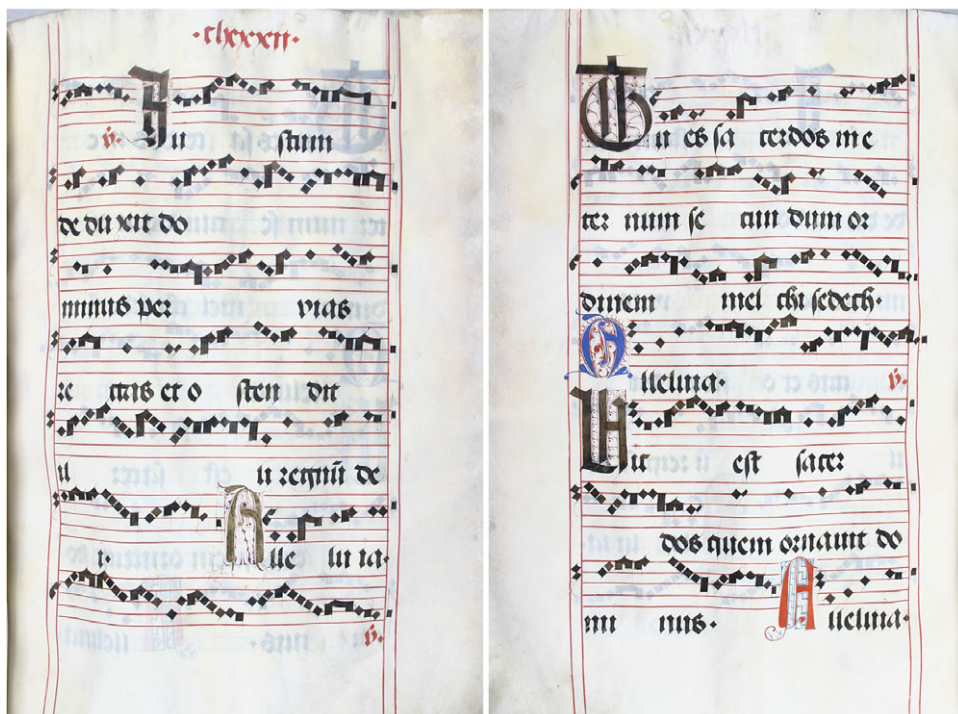 ·clxxxii·
℣. Iu stum
de du xit do
minus per vias
re ctas et o sten dit
il li regnū de
i· Alle lu ia·
℣.
Tu es sa cerdos in e
ter num se cun dum or
dinem mel chi sedech·
Alleluia· ℣.
Hic est sacer
dos quem ornauit do
mi nus· Alleluia·